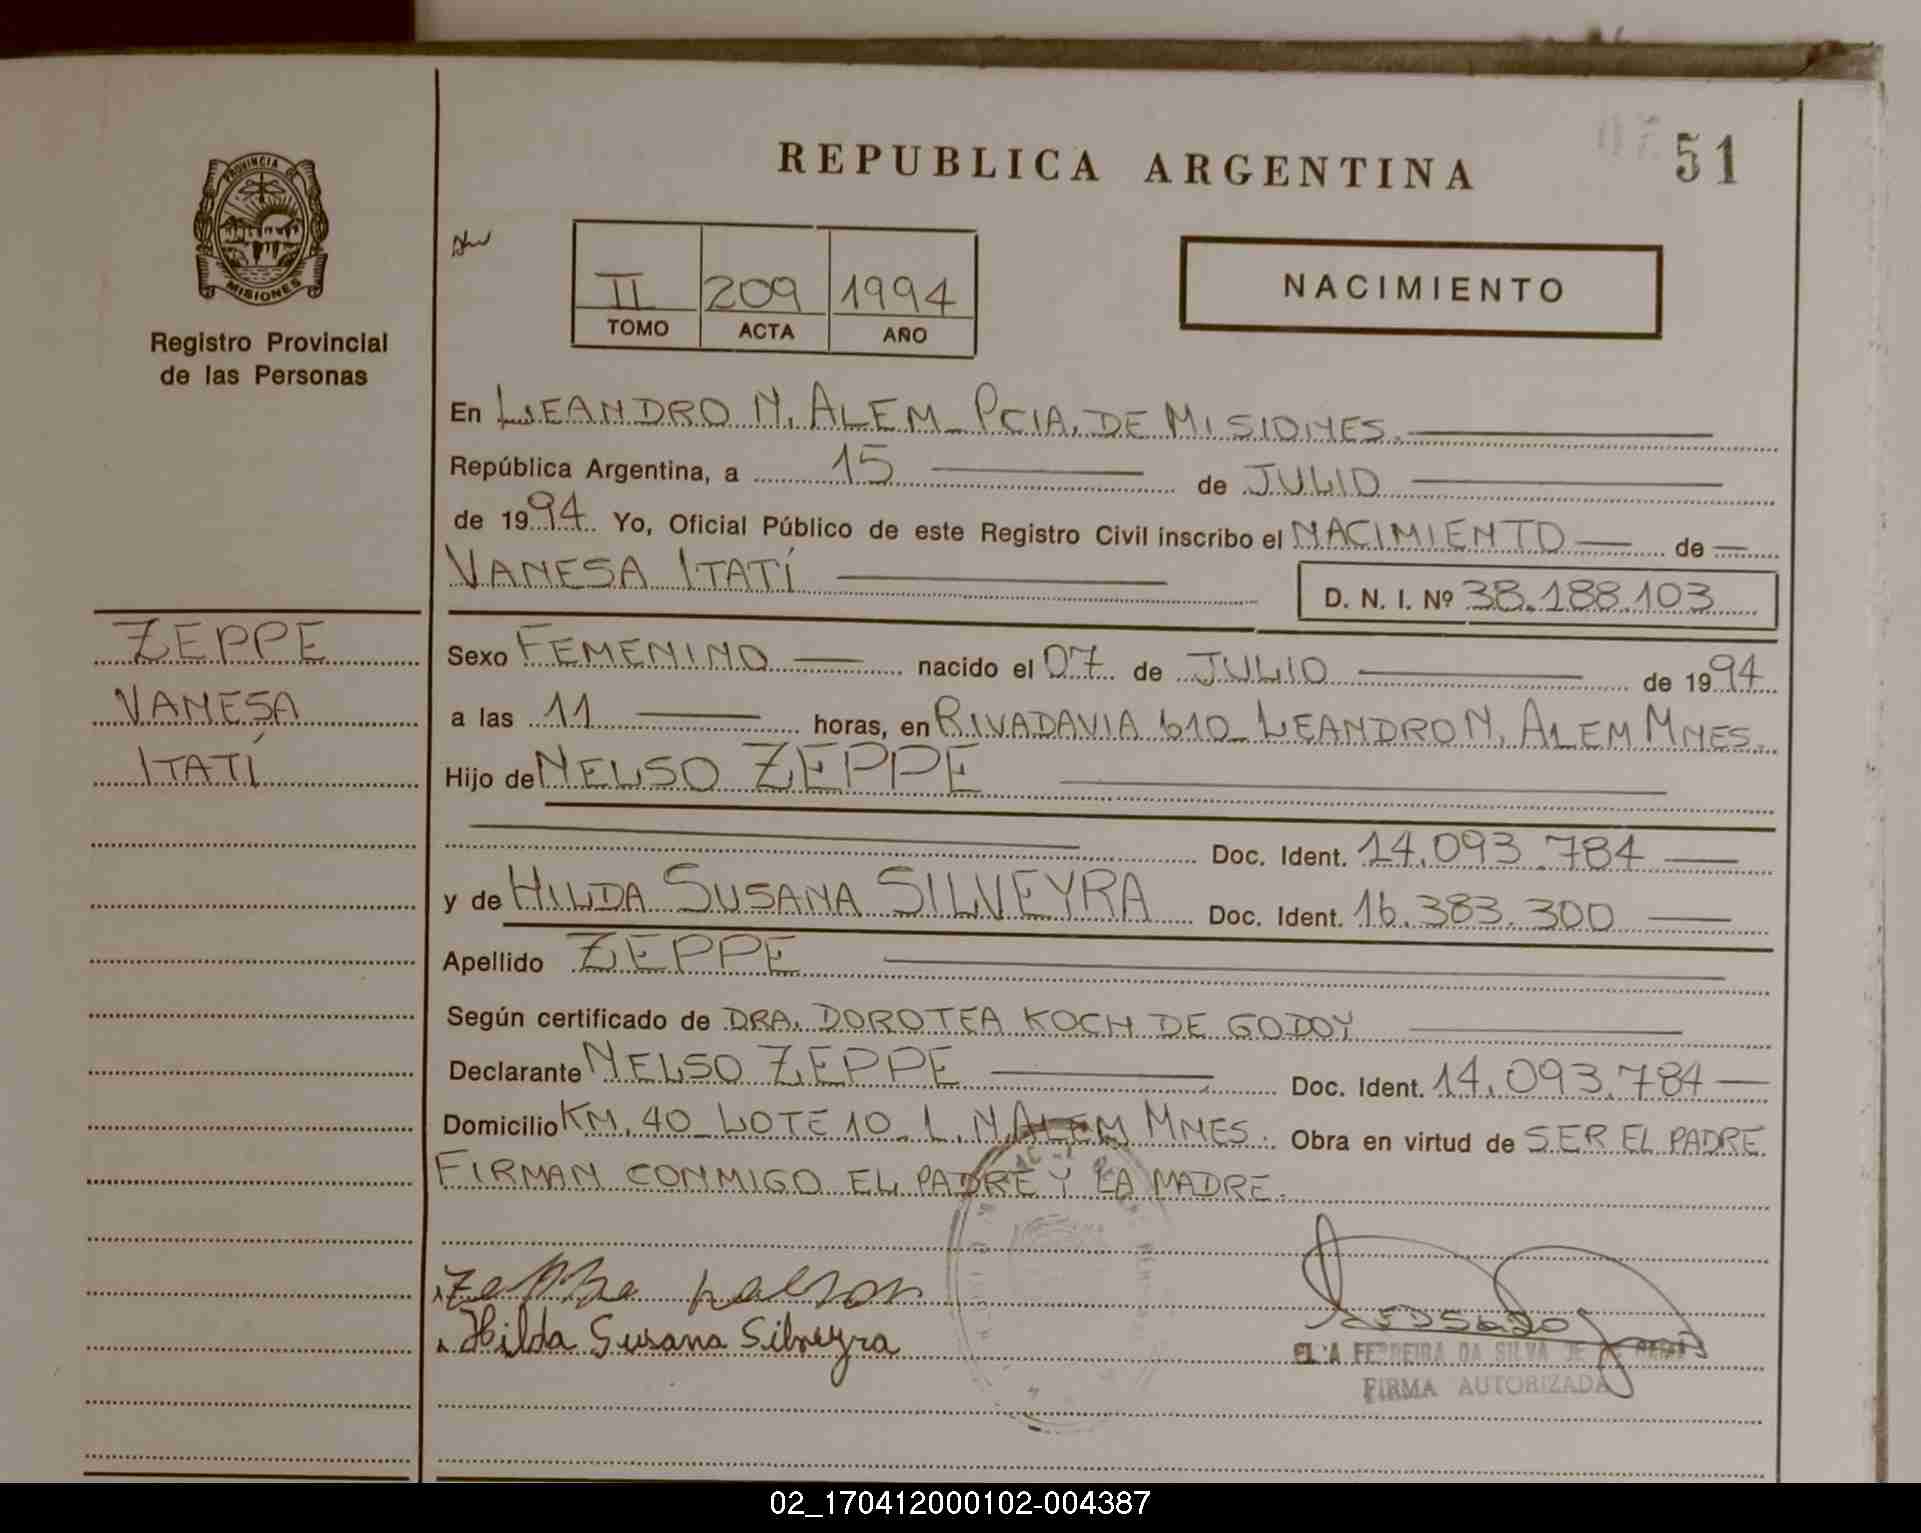 REPUBLICA ARGENTINA
51
PROVINCIA DE
MISIONES
Registro Provincial
de las Personas
II 209 1994
TOMO ACTA AÑO
NACIMIENTO
En LEANDRO N. ALEM_PCIA. DE MISIONES.
República Argentina, a 15 de JULIO
de 1994. Yo, Oficial Público de este Registro Civil inscribo el NACIMIENTO de
VANESA ITATÍ
D. N. I. Nº 38.188.103
ZEPPE
VANESA
ITATÍ
Sexo FEMENINO nacido el 07 de JULIO de 1994
a las 11 horas, en RIVADAVIA 610_LEANDRO N. ALEM MNES.
Hijo de NELSO ZEPPE
Doc. Ident. 14.093.784
y de HILDA SUSANA SILVEYRA Doc. Ident. 16.383.300
Apellido ZEPPE
Según certificado de DRA. DOROTEA KOCH DE GODOY
Declarante NELSO ZEPPE Doc. Ident. 14.093.784
Domicilio KM. 40_LOTE 10_L.N.ALEM MNES. Obra en virtud de SER EL PADRE
FIRMAN CONMIGO EL PADRE Y LA MADRE.
Zeppe nelson
Hilda Susana Silveyra
FERREIRA DA SILVA DE
FIRMA AUTORIZADA
02_170412000102-004387